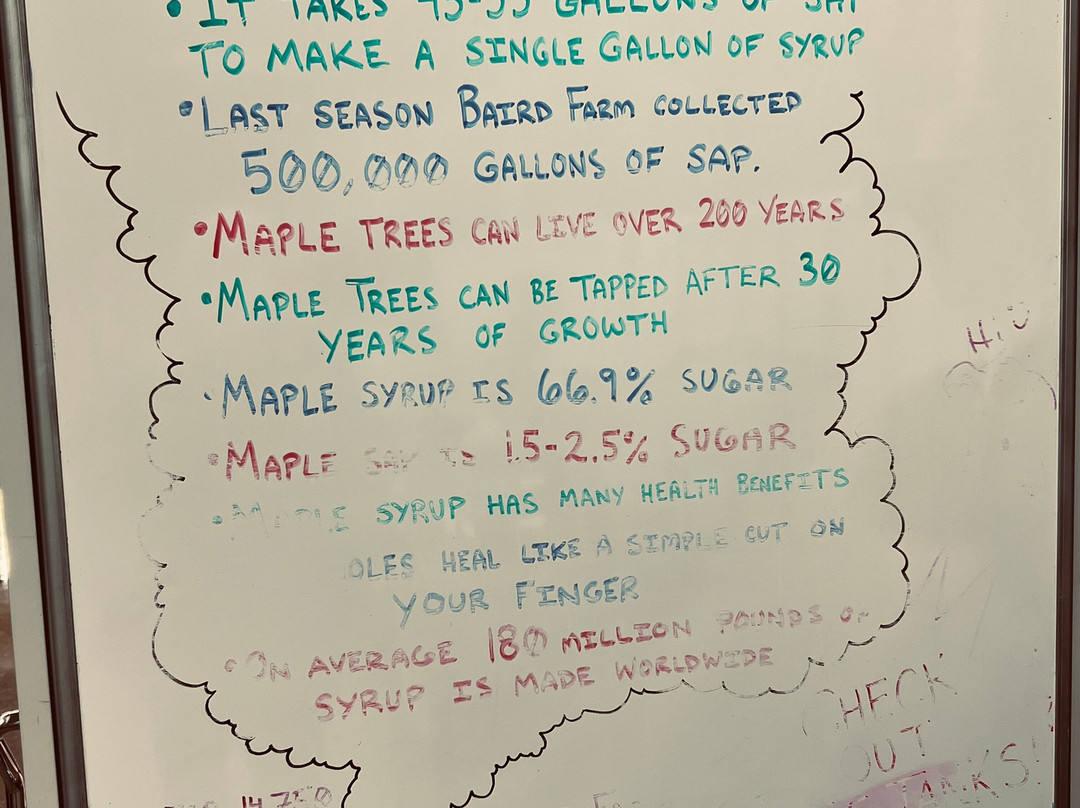 • IT TAKES GALLONS OF SAP
TO MAKE A SINGLE GALLON OF SYRUP
• LAST SEASON BAIRD FARM COLLECTED
500,000 GALLONS OF SAP.
• MAPLE TREES CAN LIVE OVER 200 YEARS
• MAPLE TREES CAN BE TAPPED AFTER 30
YEARS OF GROWTH
• MAPLE SYRUP IS 66.9% SUGAR
• MAPLE SAP IS 1.5-2.5% SUGAR
• MAPLE SYRUP HAS MANY HEALTH BENEFITS
OLES HEAL LIKE A SIMPLE CUT ON
YOUR FINGER
• ON AVERAGE 180 MILLION POUNDS OF
SYRUP IS MADE WORLDWIDE
Hi
CHECK
OUT
TANKS!
14,750